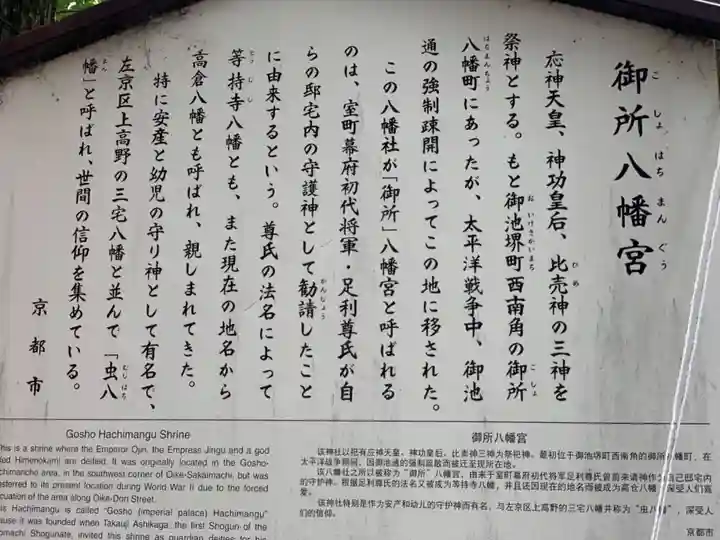 御所八幡宮
こしょはちまんぐう
応神天皇、神功皇后、比売神の三神を
ひめ
祭神とする。もと御池堺町西南角の御所
おいけさかいまち
こしょ
八幡町にあったが、太平洋戦争中、御池
はちまんちょう
通の強制疎開によってこの地に移された。
この八幡社が「御所」八幡宮と呼ばれる
のは、室町幕府初代将軍・足利尊氏が自
らの邸宅内の守護神として勧請したこと
かんじょう
に由来するという。尊氏の法名によって
等持寺八幡とも、また現在の地名から
とうじじ
高倉八幡とも呼ばれ、親しまれてきた。
特に安産と幼児の守り神として有名で、
左京区上高野の三宅八幡と並んで「虫八
むしはち
幡」と呼ばれ、世間の信仰を集めている。
まん
京都市
Gosho Hachimangu Shrine
This is a shrine where the Emperor Ojin, the Empress Jingu and a god
Himenokami) are deified. It was originally located in the Gosho-
chimancho area, in the southwest corner of Oike-Sakaimachi, but was
nsferred to its present location during World War II due to the forced
cuation of the area along Oike-Dori Street.
his Hachimangu is called "Gosho (imperial palace) Hachimangu"
ause it was founded when Takauji Ashikaga, the first Shogun of the
omachi Shogunate, invited this shrine as guardian deities for his
御所八幡宮
该神社以把有应神天皇、神功皇后、比卖神三神为祭祀神。最初位于御池堺町西南角的御所八幡町，在
太平洋战争期间，因御池通的强制疏散而被迁至现所在地。
该八幡社之所以被称为“御所”八幡宫，由来于室町幕府初代将军足利尊氏曾前来请神作为自己邸宅内
的守护神。根据足利尊氏的法名又被成为等持寺八幡，并且还因现在的地名而被成为高仓八幡，深受人们喜
爱。
该神社特别是作为安产和幼儿的守护神而有名，与左京区上高野的三宅八幡并称为“虫八幡”，深受人
们的信仰。
京都市